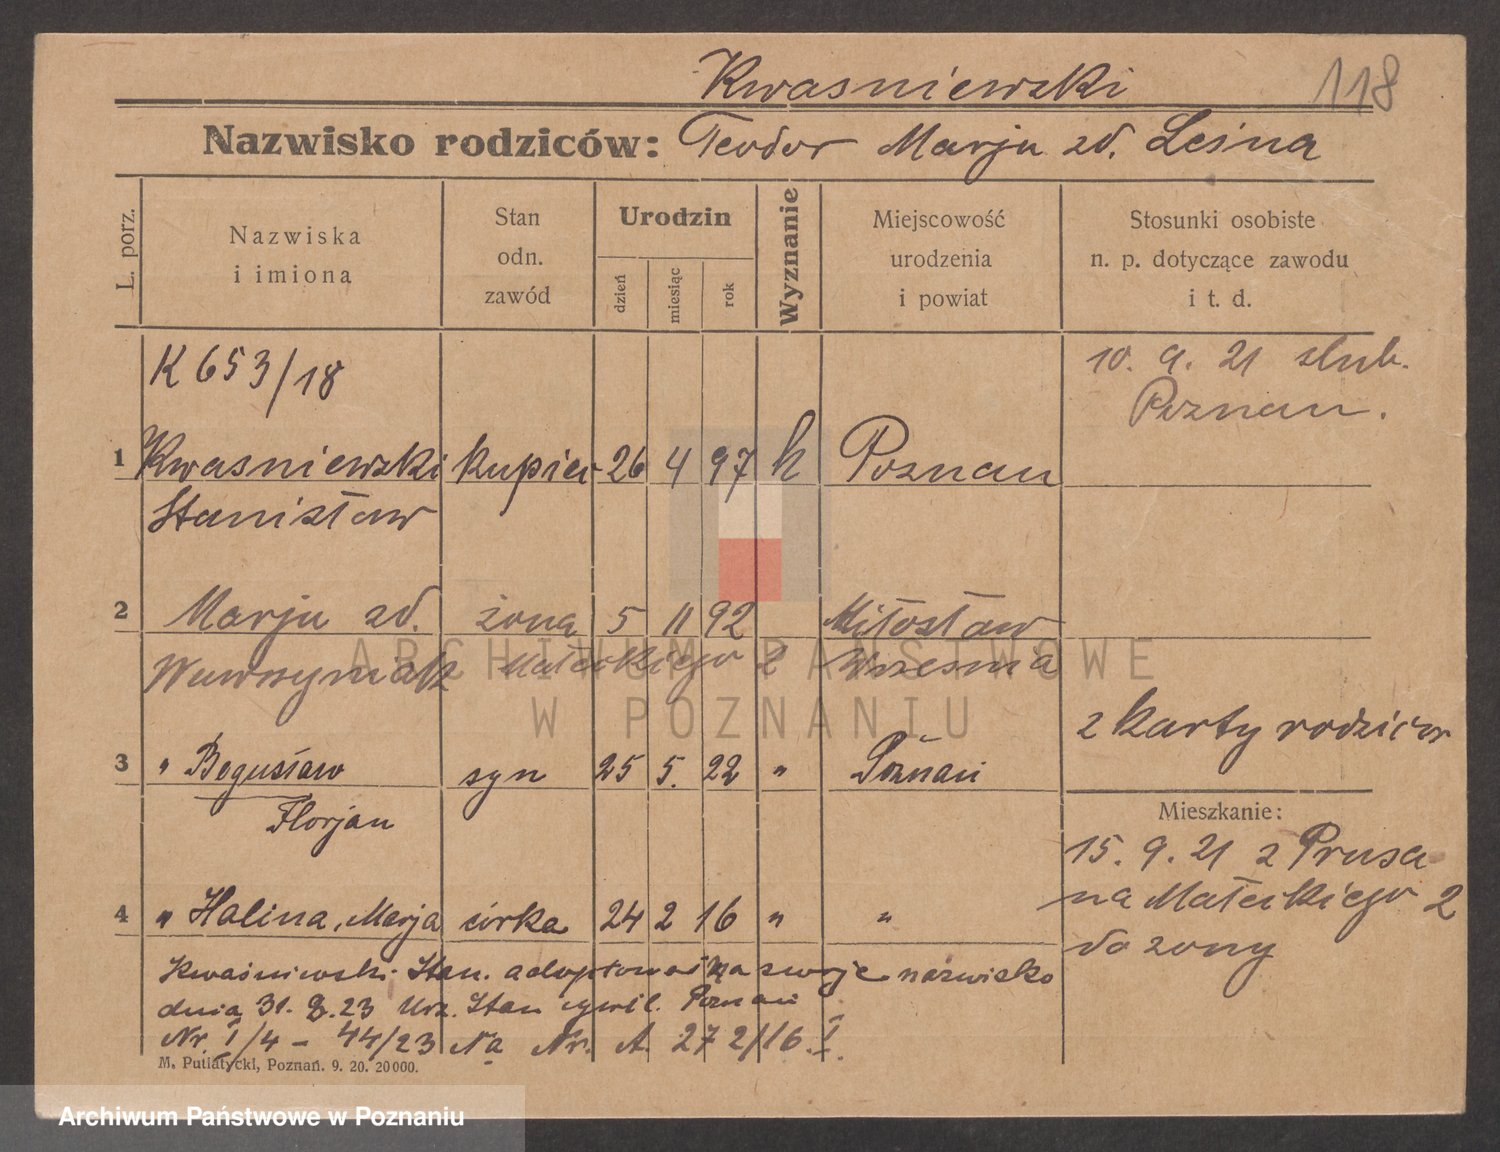 Kwasniewski
118
Nazwisko rodziców: Teodor Marju zd. Leśna
L. porz.
Nazwiska
i imiona
Stan
odn.
zawód
Urodzin
dzień
miesiąc
rok
Wyznanie
Miejscowość
urodzenia
i powiat
Stosunki osobiste
n. p. dotyczące zawodu
i t. d.
K 653/18
10. 9. 21 slub.
Poznan.
1 Kwasniewski kupiec 26 4 97 k Poznan
Stanisław
2 Marju zd. żona 5 11 92 Miłosław
Małeckiego 2 Wrzesnia
z karty rodziców
3 " Bogusław syn 25 5. 22 " Poznań
Florjan
Mieszkanie:
15. 9. 21 z Prusa
na Małeckiego 2
do zony
4 " Halina, Marja córka 24 2 16 " "
Kwaśniewski Stan. adoptował na swoje nazwisko
dnia 31. 8. 23 Urz. Stan cywil. Poznań
Nr. I/4 - 44/23 Na Nr. A. 272/16. I.
M. Putiatycki, Poznań. 9. 20. 20000.
ARCHIWUM PAŃSTWOWE
W POZNANIU
Archiwum Państwowe w Poznaniu